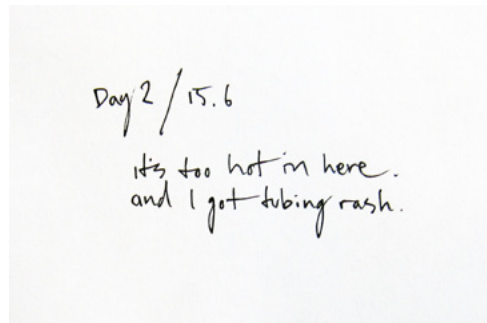 Day 2 / 15.6
it's too hot in here.
and I got tubing rash.